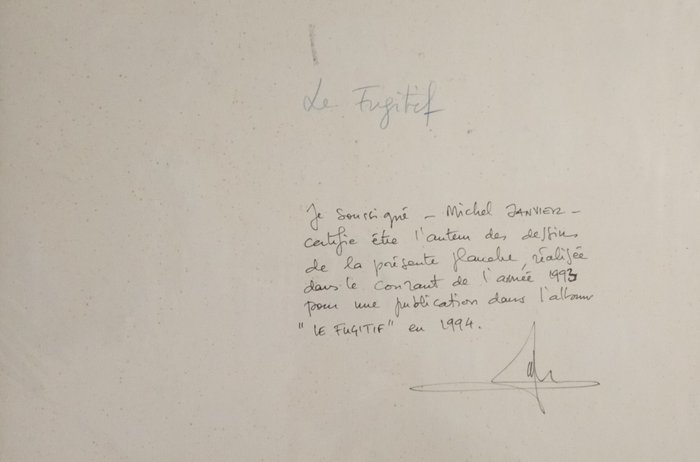 Le Fugitif
Je soussigné – Michel JANVIER –
certifie être l'auteur des dessins
de la présente planche, réalisée
dans le courant de l'année 1993
pour une publication dans l'album
"LE FUGITIF" en 1994.